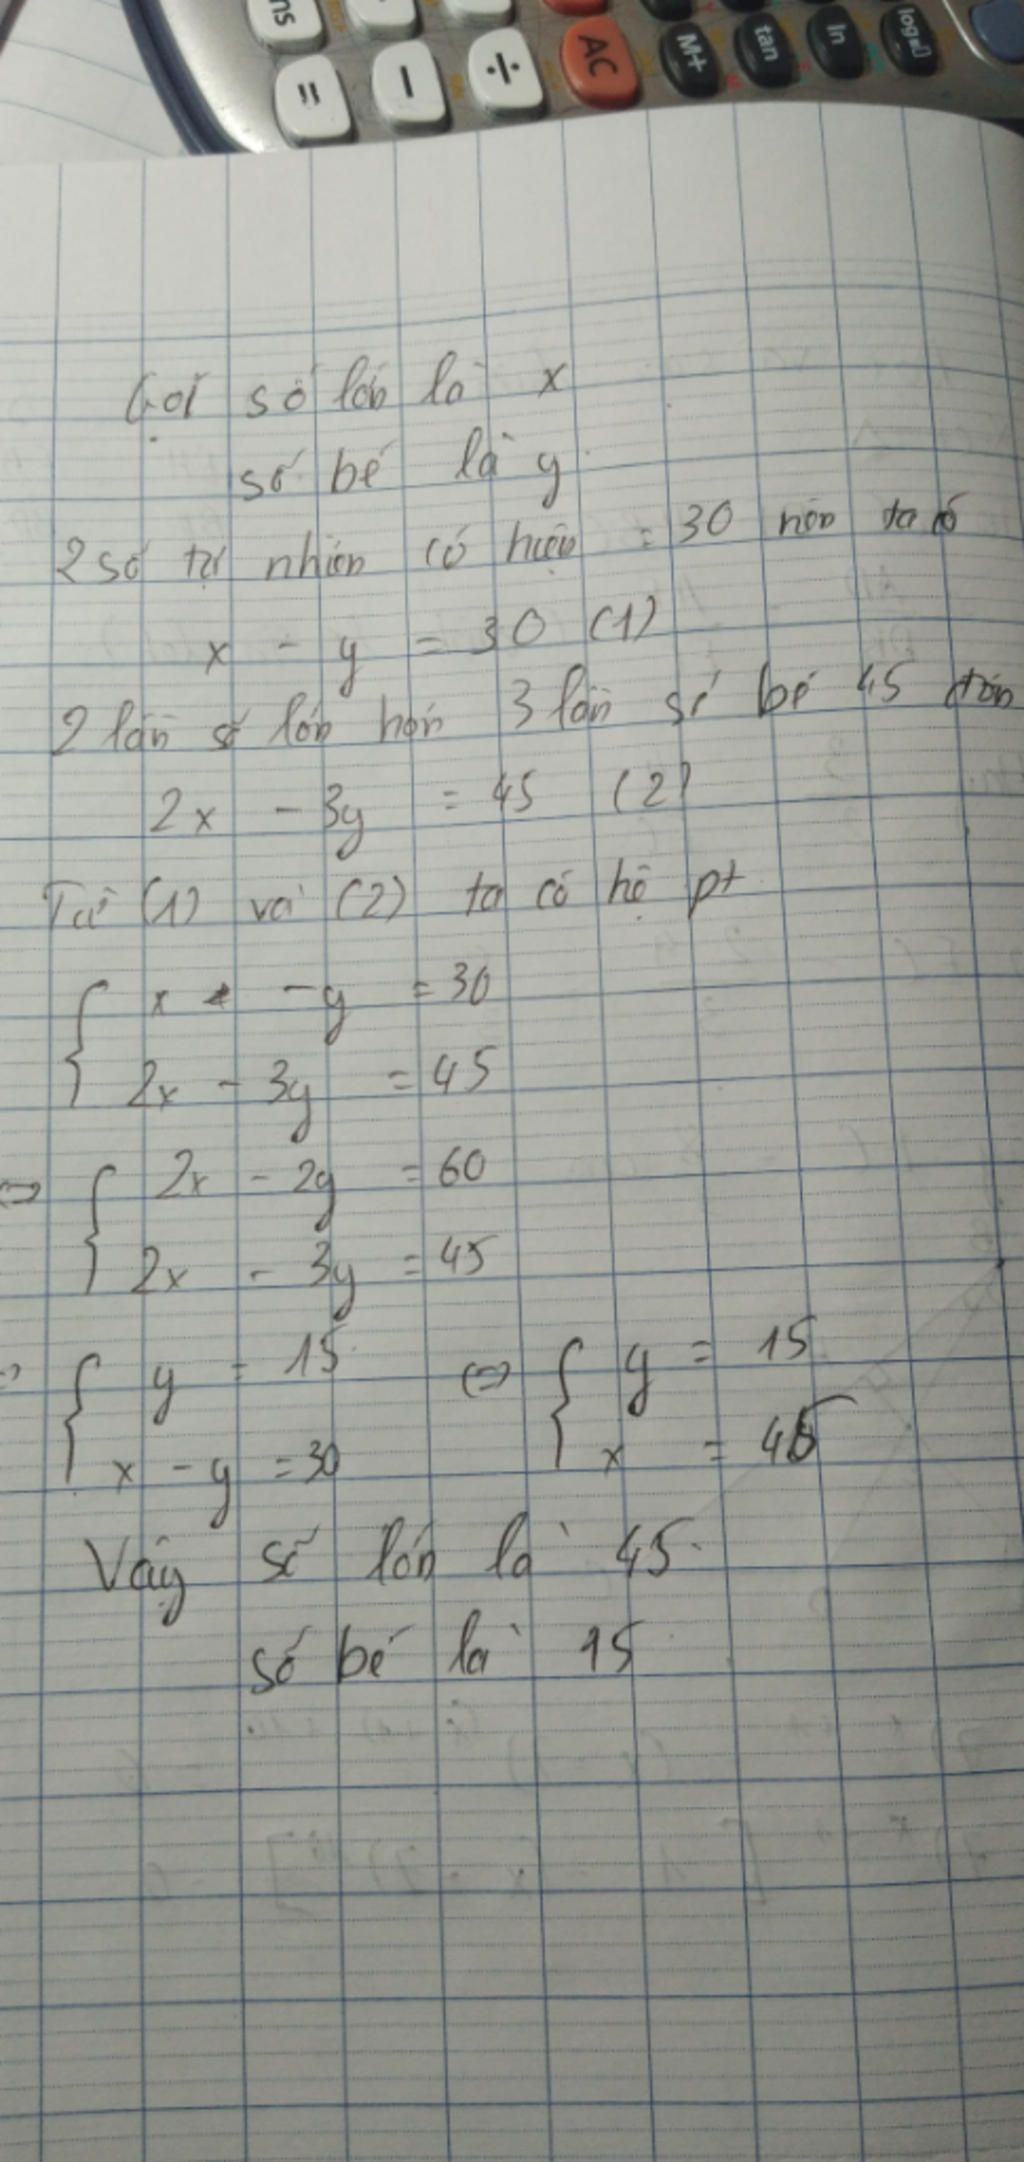 ns
=
−
÷
AC
M+
tan
ln
log
Gọi số lớn là x
số bé là y
2 số tự nhiên có hiệu = 30 nên ta có
x - y = 30 (1)
2 lần số lớn hơn 3 lần số bé 45 đơn
2x - 3y = 45 (2)
Từ (1) và (2) ta có hệ pt
{ x - y = 30
2x - 3y = 45
⇔ { 2x - 2y = 60
2x - 3y = 45
⇔ { y = 15 ⇔ { y = 15
x - y = 30 x = 45
Vậy số lớn là 45.
số bé là 15